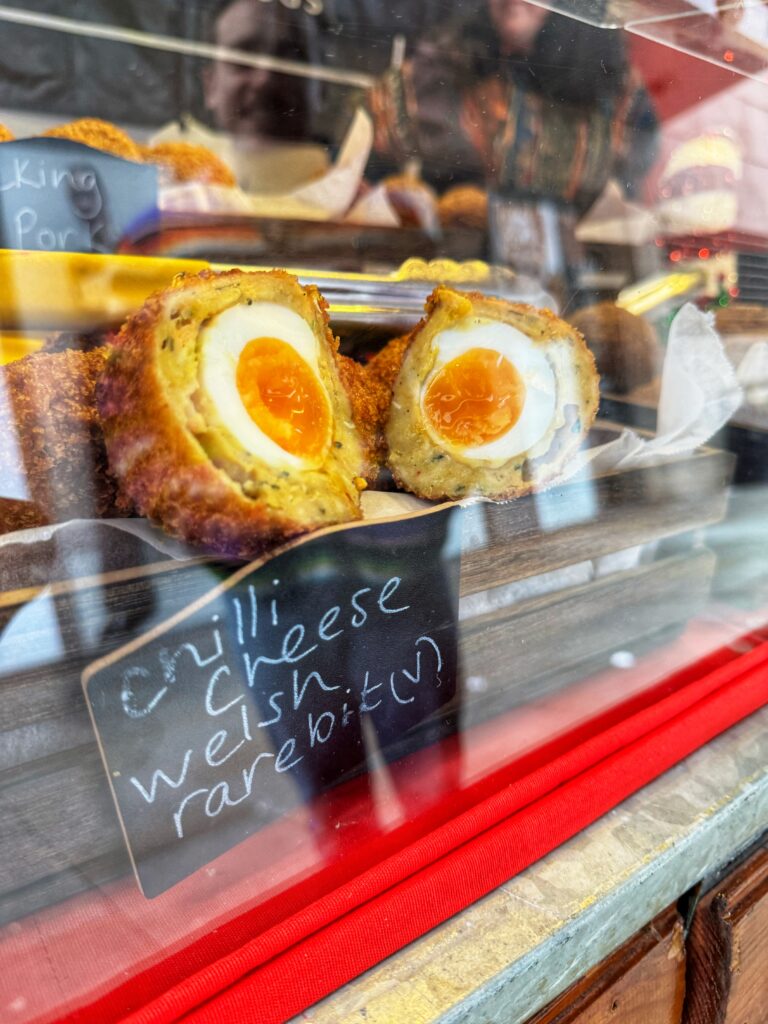 cking
Pork
chilli
Cheese
welsh
rarebit (v)